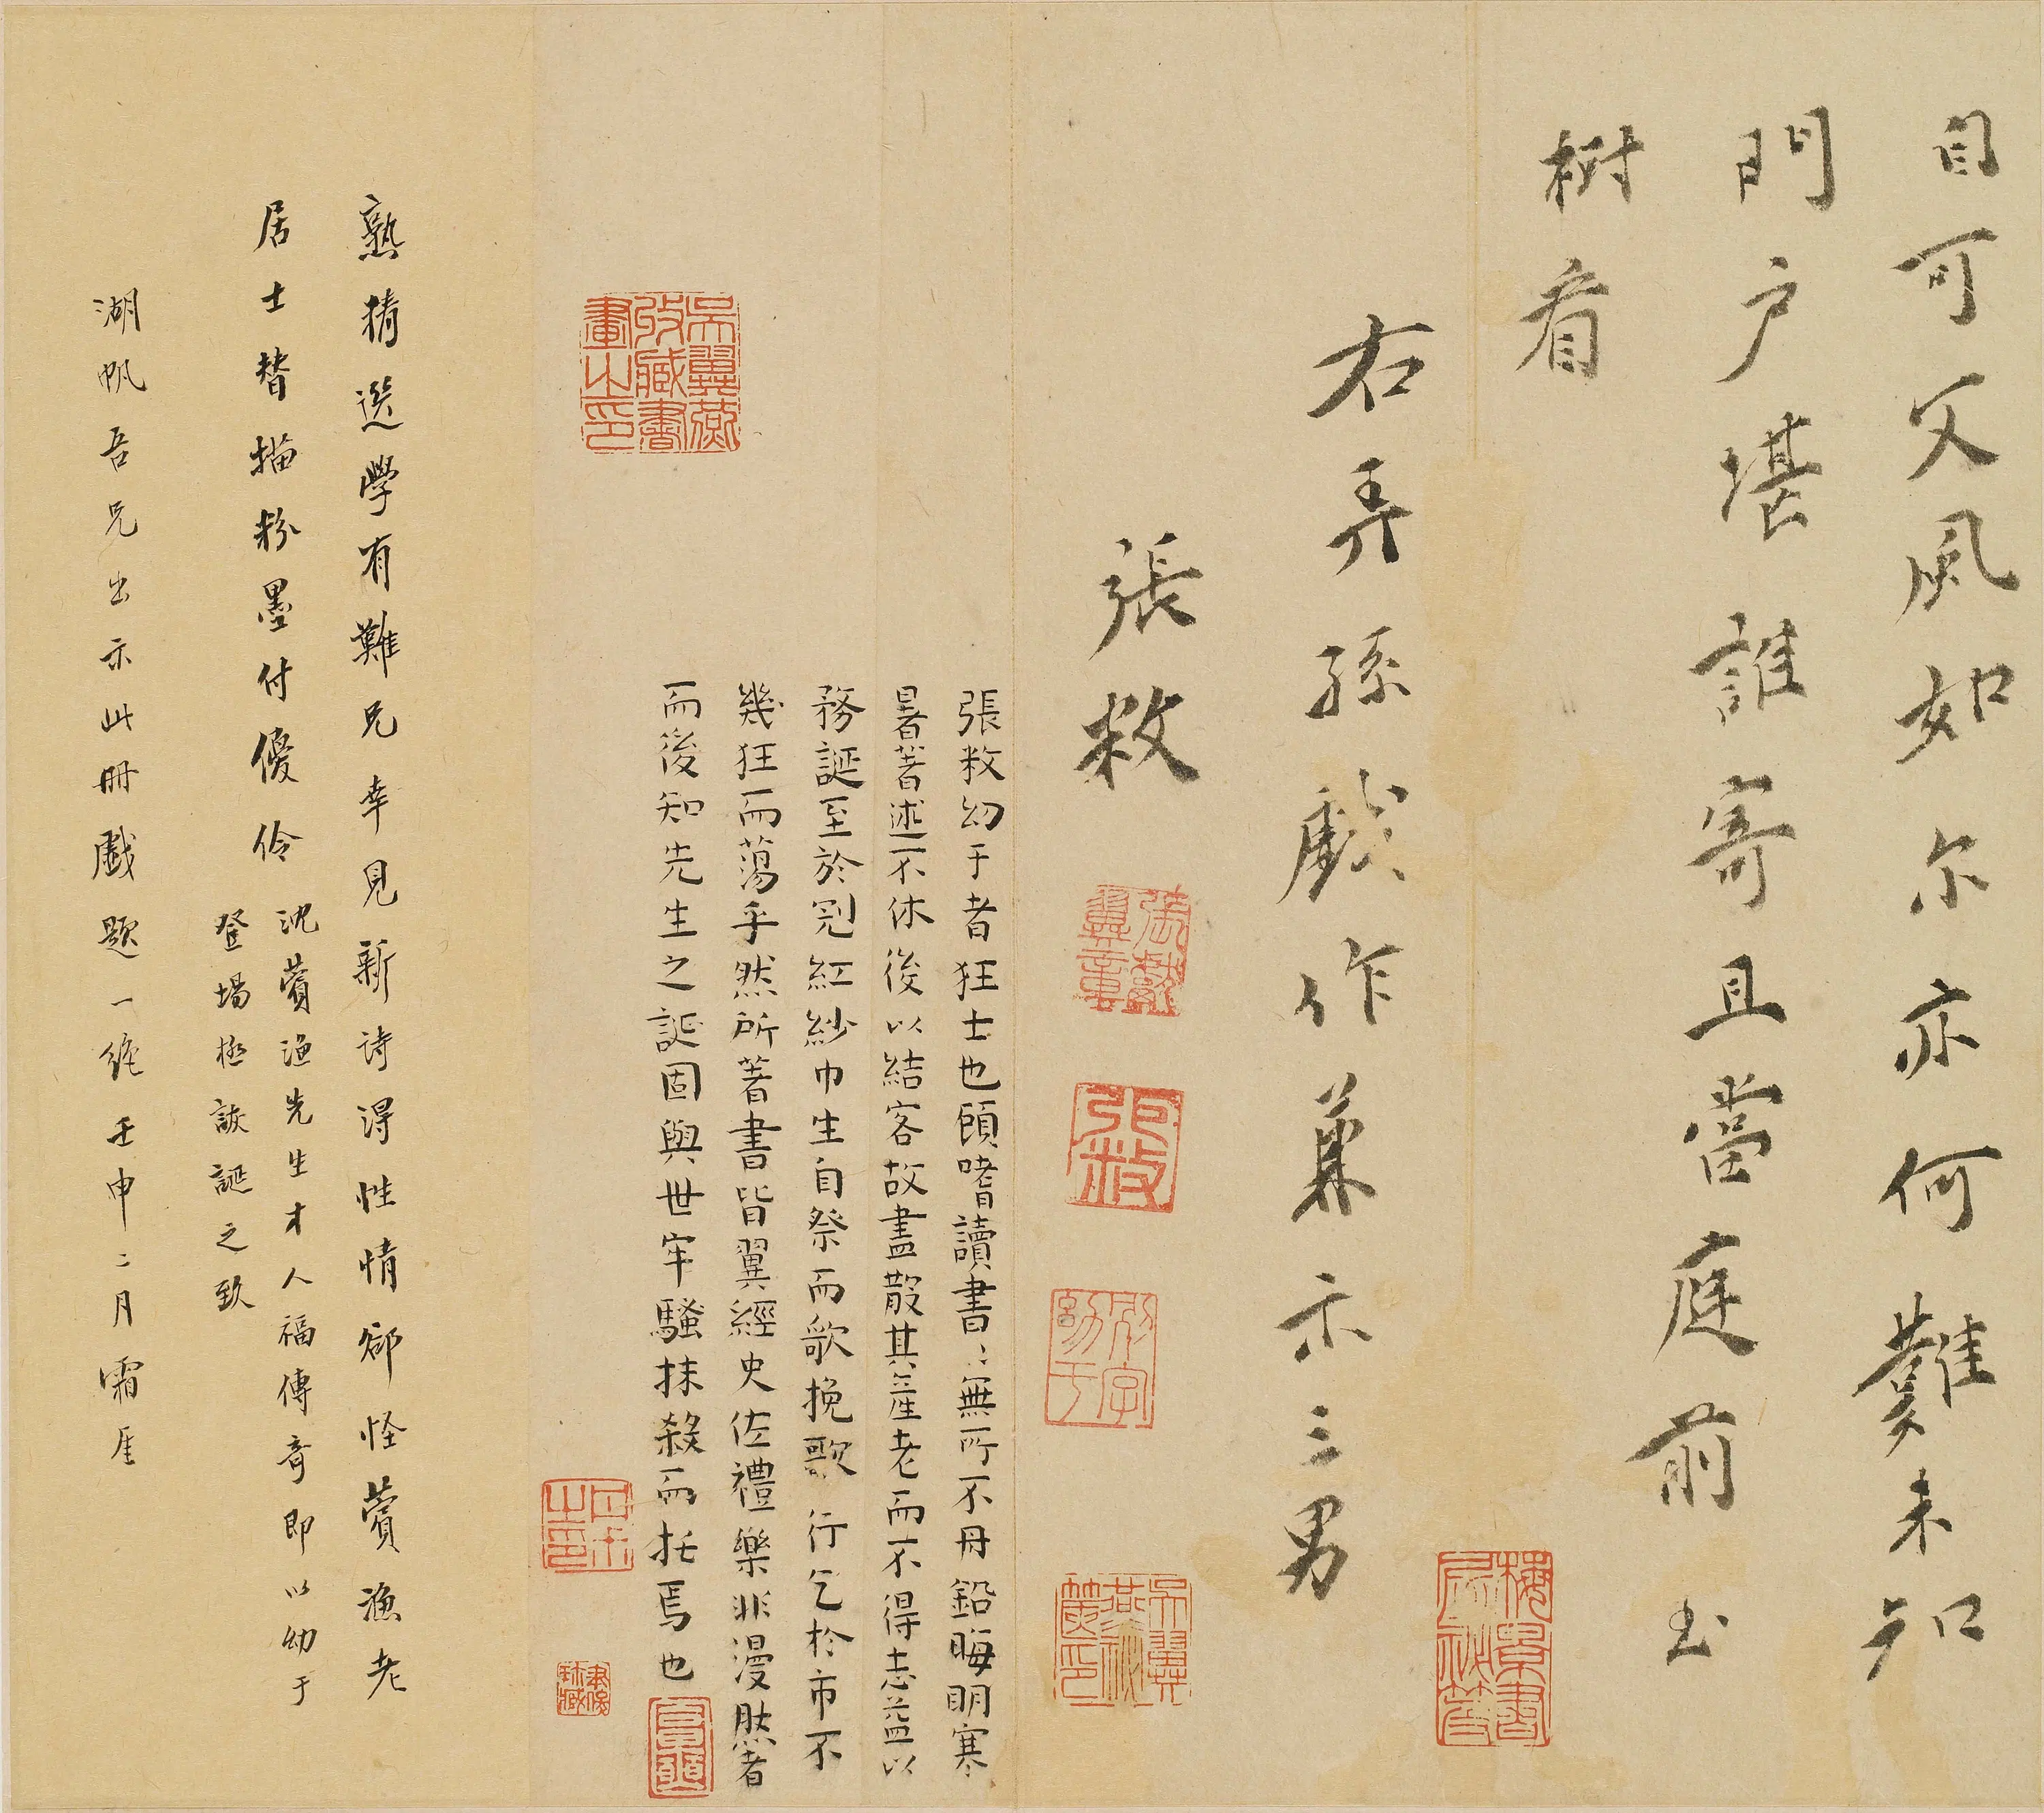 自可父風如尔亦何難未知
門户堪誰寄且當庭前玉
樹看
右弄孫戲作兼示三男
張敉
張敉幼于者狂士也頗嗜讀書〻無所不丹鉛晦明寒
暑著述不休後以結客故盡散其產老而不得志益以
務誕至於冠紅紗巾生自祭而歌挽歌行乞於市不
幾狂而蕩乎然所著書皆翼經史佐禮樂非漫肰者
而後知先生之誕固與世牢騷抹殺而托焉也
吳翼燕收藏書畫之印
熟精選學有難兄幸見新诗得性情卻怪薲漁老
居士替描粉墨付優伶
沈薲漁先生才人福傳奇即以幼于
登場極詼誕之致
湖帆吾兄出示此冊戲題一絕壬申二月霜厓